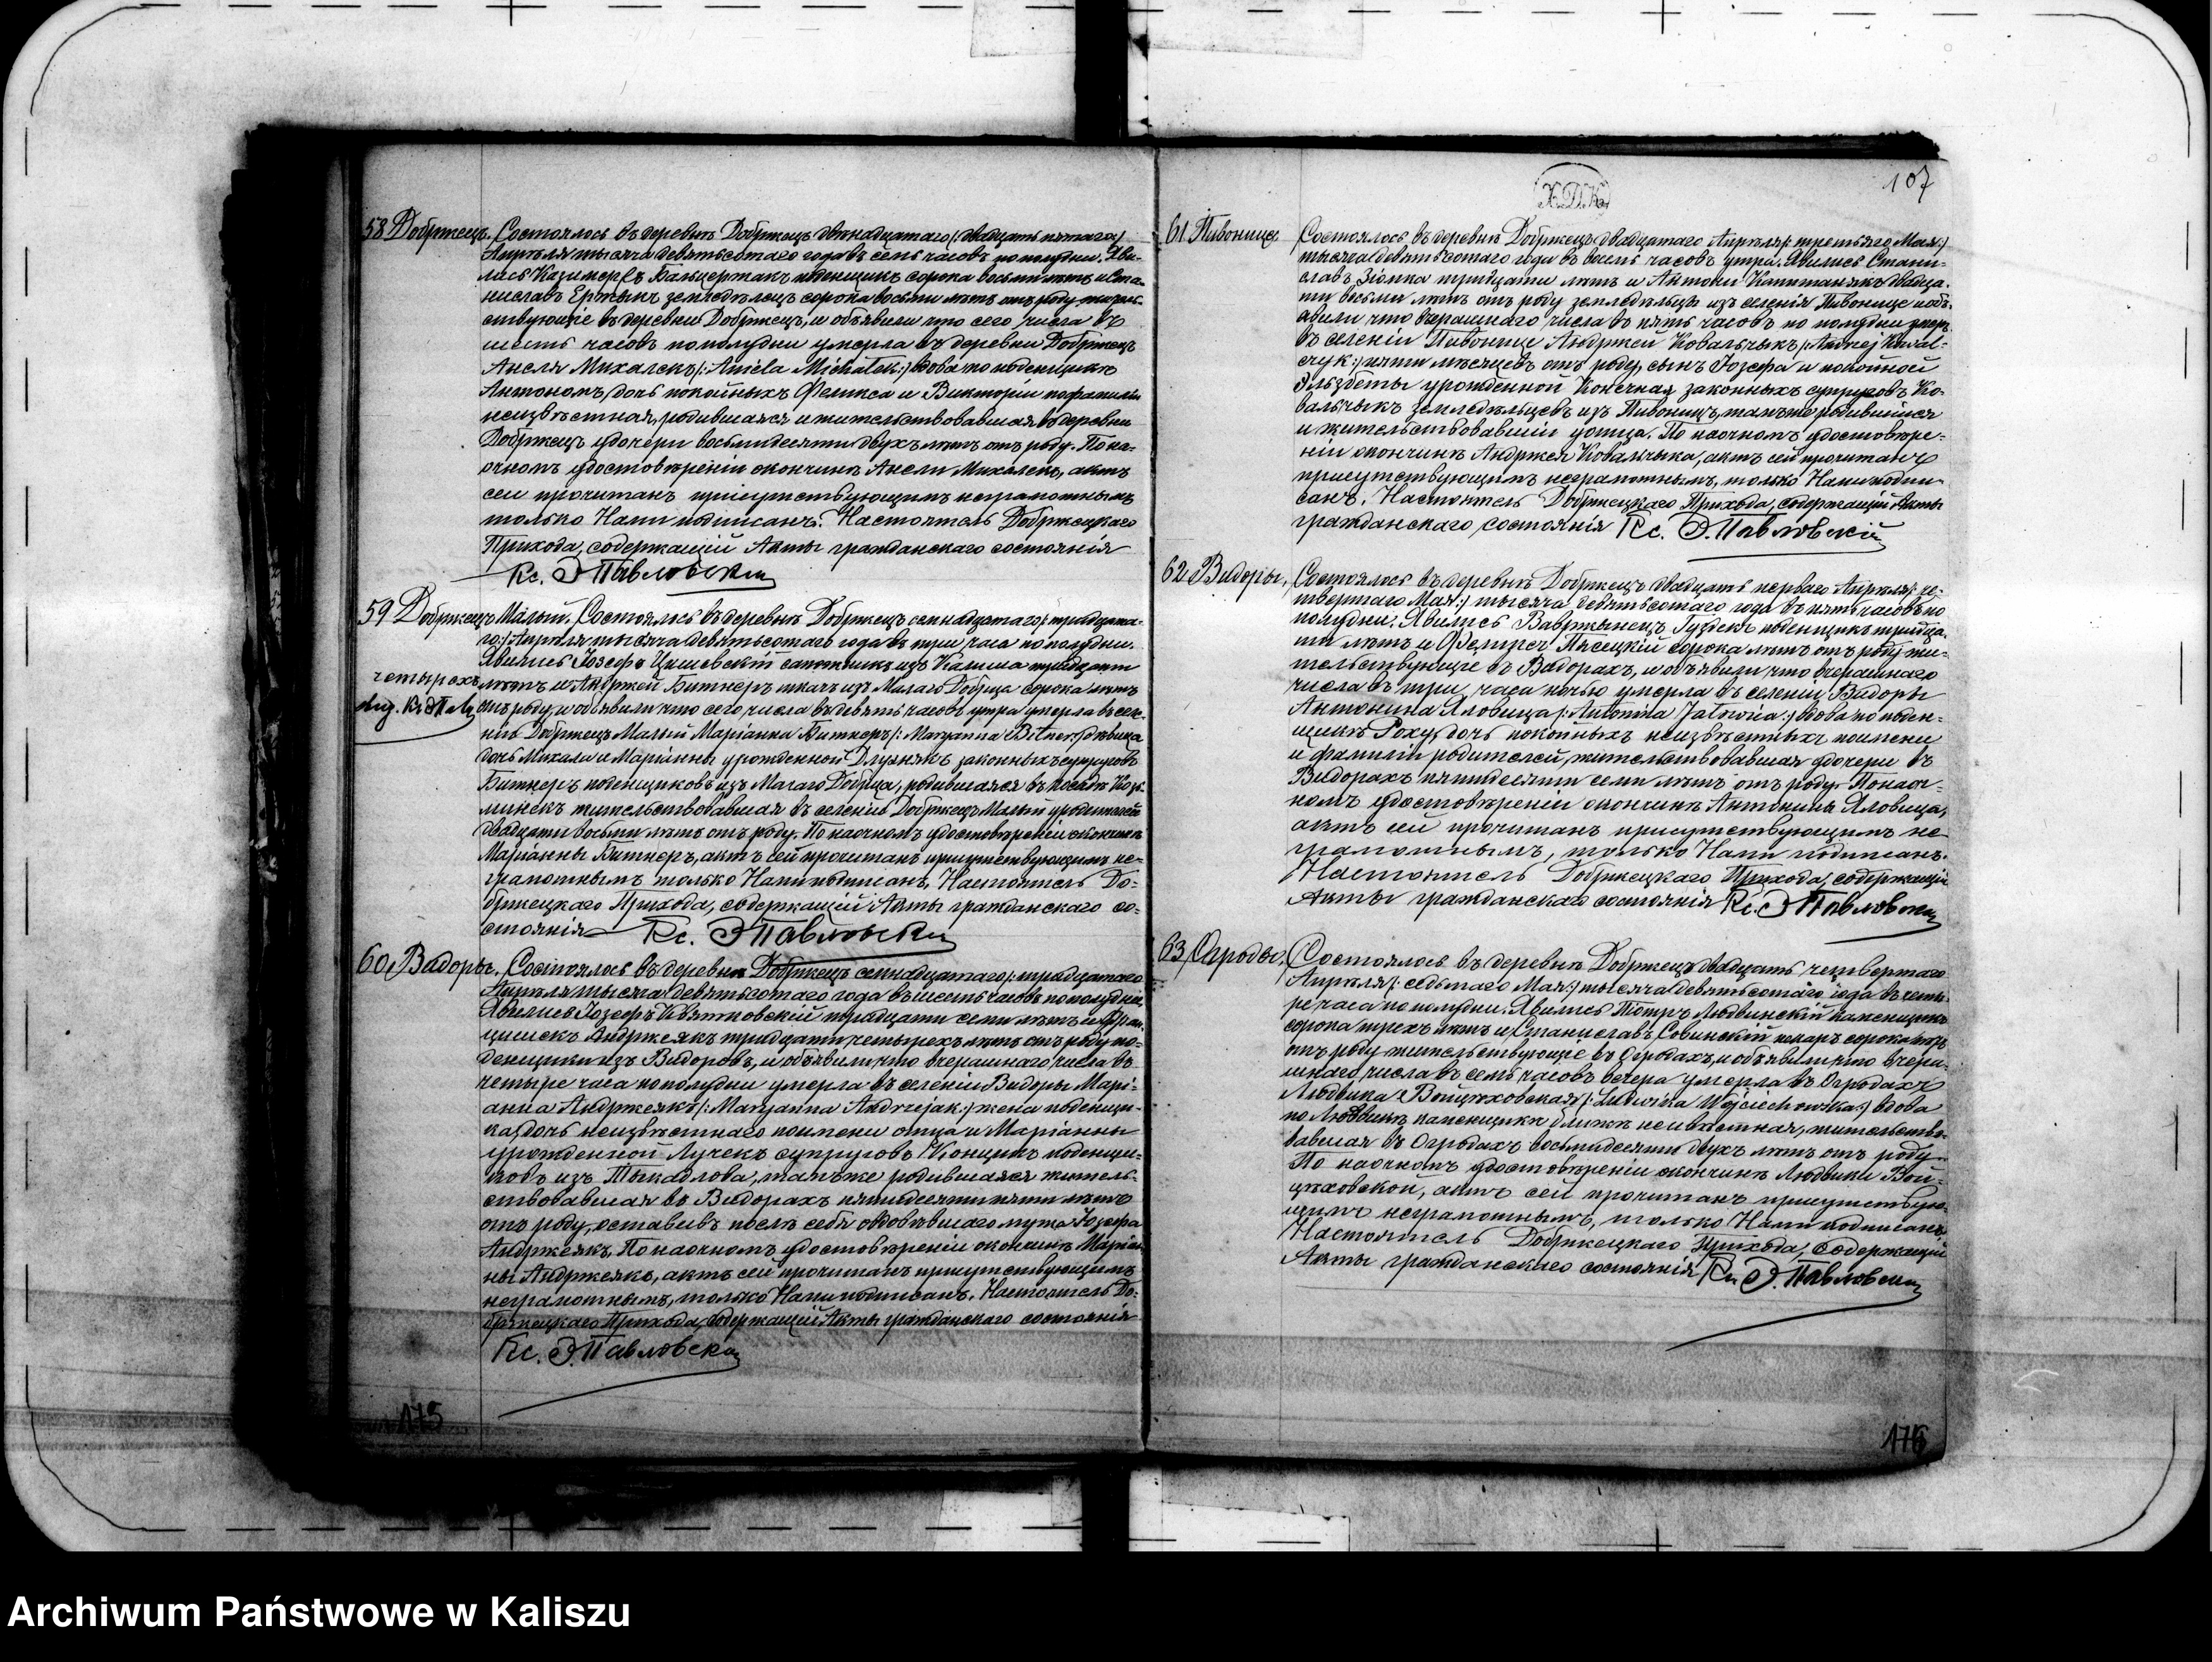 58 Добржецъ. Состоялось въ деревнѣ Добржецъ двѣнадцатаго /: двадцать пятаго :/
Апрѣля тысяча девятьсотаго года въ семь часовъ по полудни. Яви-
лись Казимеръ Банцержакъ поденщикъ сорока восьми лѣтъ и Ста-
ниславъ земледѣлецъ сорока восьми лѣтъ отъ роду житель-
ствующіе въ деревни Добржецъ, и объявили что сего числа въ
шесть часовъ по полудни умерла въ деревни Добржецъ
Анеля Михалекъ /: Aniela Michałek :/ вдова по поденщикѣ
Антономъ, дочь покойныхъ Феликса и Викторіи по фамиліи
неизвѣстная, родившаяся и жительствовавшая въ деревни
Добржецъ у дочери восьмидесяти двухъ лѣтъ отъ роду. По на-
очномъ удостовѣреніи окончинѣ Анели Михалекъ, актъ
сей прочитанъ присутствующимъ неграмотнымъ
только Нами подписанъ. Настоятель Добржецкаго
Прихода, содержащій Акты гражданскаго состоянія
Кс. Э Павловски
59 Добржецъ Малый. Состоялось въ деревнѣ Добржецъ семнадцатаго /: тридцата-
го :/ Апрѣля тысяча девятьсотаго года въ три часа по полудни.
Явились Іозефъ сапожникъ изъ Калиша тридцати
четырехъ лѣтъ и Андржей Битнеръ ткачъ изъ Малаго Добрца сорока лѣтъ
отъ роду, и объявили что сего числа въ девять часовъ утра умерла въ селе-
ніи Добржецъ Малый Маріанна Битнеръ /: Maryanna Bitner :/ дѣвица
дочь Михала и Маріанны урожденной Длужнякъ законныхъ супруговъ
Битнеръ поденщиковъ изъ Малаго Добрца, родившаяся въ посадѣ Козь-
минекъ жительствовавшая въ селеніи Добржецъ Малый у родителей
двадцати восьми лѣтъ отъ роду. По наочномъ удостовѣреніи окончинѣ
Маріанны Битнеръ, актъ сей прочитанъ присутствующимъ не-
грамотнымъ только Нами подписанъ. Настоятель До-
бржецкаго Прихода, содержащій Акты гражданскаго со-
стоянія Кс. Э Павловски
60 Видоры. Состоялось въ деревнѣ Добржецъ семнадцатаго /: тридцатаго
Апрѣля тысяча девятьсотаго года въ шесть часовъ по полудни.
Явились Іозефъ Квятковскій тридцати семи лѣтъ и Фран-
цишекъ Андржеякъ тридцати четырехъ лѣтъ отъ роду по-
денщики изъ Видоровъ, и объявили что вчерашнаго числа въ
четыре часа по полудни умерла въ селеніи Видоры Марі-
анна Андржеякъ /: Maryanna Andrzejak :/ жена поденщи-
ка, дочь неизвѣстнаго по имени отца и Маріанны
урожденной Лучекъ супруговъ поденщи-
ковъ изъ Тымадлова, тамъже родившаяся житель-
ствовавшая въ Видорахъ пятидесяти пяти лѣтъ
отъ роду, оставивъ послѣ себя овдовѣвшаго мужа Іозефа
Андржеякъ. По наочномъ удостовѣреніи окончинѣ Маріан-
ны Андржеякъ, актъ сей прочитанъ присутствующимъ
неграмотнымъ, только Нами подписанъ. Настоятель До-
бржецкаго Прихода, содержащій Акты гражданскаго состоянія
Кс. Э. Павловски
175
107
Х.Д.К.
61 Пивонице Состоялось въ деревнѣ Добржецъ двадцатаго Апрѣля /: третьяго Мая :/
тысяча девятьсотаго года въ восемь часовъ утра. Явились Стани-
славъ Зіомка тридцати лѣтъ и Антони двадца-
ти восьми лѣтъ отъ роду земледѣльцы изъ селенія Пивонице и объ-
явили что вчерашнаго числа въ пять часовъ по полудни умеръ
въ селеніи Пивонице Андржей Ковальчыкъ /: Andrzej Kowal-
czyk :/ пяти мѣсяцевъ отъ роду, сынъ Іозефа и покойной
Эльзбеты урожденной Конечная законныхъ супруговъ Ко-
вальчыкъ земледѣльцевъ изъ Пивоницъ, тамъже родившійся
и жительствовавшій у отца. По наочномъ удостовѣре-
ніи окончинѣ Андржея Ковальчыка, актъ сей прочитанъ
присутствующимъ неграмотнымъ, только Нами подпи-
санъ. Настоятель Добржецкаго Прихода, содержащій Акты
гражданскаго состоянія Кс. Э. Павловскій
62 Видоры, Состоялось въ деревнѣ Добржецъ двадцать перваго Апрѣля /: че-
твертаго Мая :/ тысяча девятьсотаго года въ пять часовъ по
полудни. Явились Вавржынецъ Гуздекъ поденщикъ тридца-
ти лѣтъ и Пясецкій сорока лѣтъ отъ роду жи-
тельствующіе въ Видорахъ, и объявили что вчерашнаго
числа въ три часа ночью умерла въ селеніи Видоры
Антонина Яловица /: Antonina :/ вдова по поден-
щикѣ Роху, дочь покойныхъ неизвѣстныхъ по имени
и фамиліи родителей, жительствовавшая у дочери въ
Видорахъ пятидесяти семи лѣтъ отъ роду. По наоч-
номъ удостовѣреніи окончинѣ Антонины Яловица,
актъ сей прочитанъ присутствующимъ не-
грамотнымъ, только Нами подписанъ.
Настоятель Добржецкаго Прихода, содержащій
Акты гражданскаго состоянія Кс. Э Павловски
63 Огроды. Состоялось въ деревнѣ Добржецъ двадцать четвертаго
Апрѣля /: седьмаго Мая :/ тысяча девятьсотаго года въ четы-
ре часа по полудни. Явились Петръ Людвинскій каменщикъ
сорока трехъ лѣтъ и Станиславъ Совинскій пекаръ сорока лѣтъ
отъ роду жительствующіе въ Огродахъ, и объявили что вчера-
шнаго числа въ семь часовъ вечера умерла въ Огродахъ
Людвика Войцѣховская /: Ludwika Wojciechowska :/ вдова
по Людвикѣ каменщикѣ ближе неизвѣстная, жительство-
вавшая въ Огродахъ восьмидесяти двухъ лѣтъ отъ роду.
По наочномъ удостовѣреніи окончинѣ Людвики Вой-
цѣховской, актъ сей прочитанъ присутствую-
щимъ неграмотнымъ, только Нами подписанъ.
Настоятель Добржецкаго Прихода, содержащій
Акты гражданскаго состоянія Кс. Э. Павловски
176
Archiwum Państwowe w Kaliszu